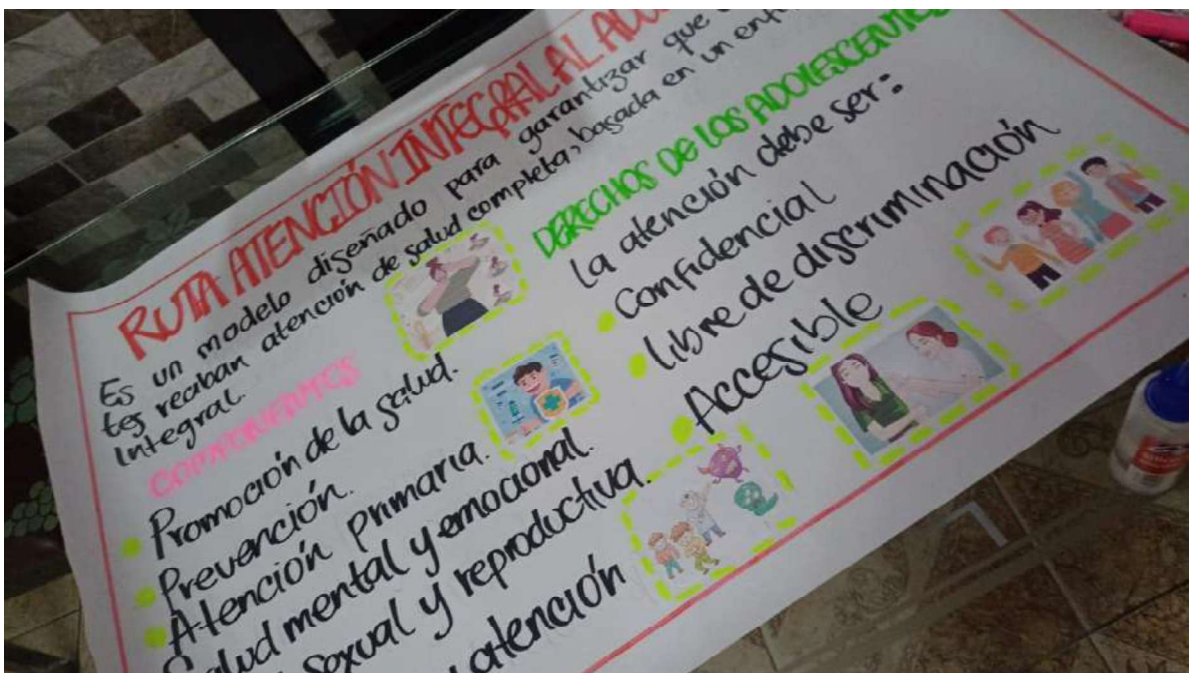 RUTA ATENCIÓN INTEGRAL AL
Es un modelo diseñado para garantizar que
tes reciban atención de salud completa, basada en un
integral.
COMPONENTES
Promoción de la salud.
Prevención.
Atención primaria.
Salud mental y emocional.
sexual y reproductiva.
atención
DERECHOS DE LOS ADOLESCENTES
la atención debe ser:
Confidencial
libre de discriminación
Accesible